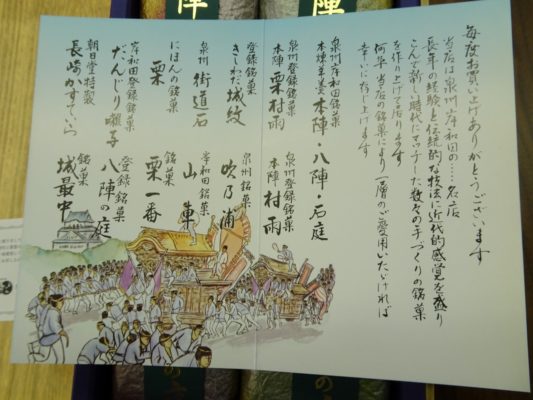 毎度お買い上げありがとうございます
当店は泉州岸和田の……名店
長年の経験と伝統的な技法に近代的感覚を盛り
こんで新し時代にマッチした数々の手づくりの銘菓
を作り上げて居ります
何卒当店の銘菓により一層のご愛用いたゞければ
幸いに存じ上げます
泉州岸和田銘菓
本煉羊羹 本陣・八陣・石庭
泉州登録銘菓
本陣 栗村雨
泉州登録銘菓
本陣 村雨
登録銘菓
きしわだ 城紋
泉州銘菓
吹乃浦
泉州 街道石
岸和田銘菓
山車
にほんの銘菓
栗
銘菓
栗一番
岸和田登録銘菓
だんじり囃子
登録銘菓
八陣の庭
朝日堂特製
長崎かすていら
銘菓
城最中
陣
陣